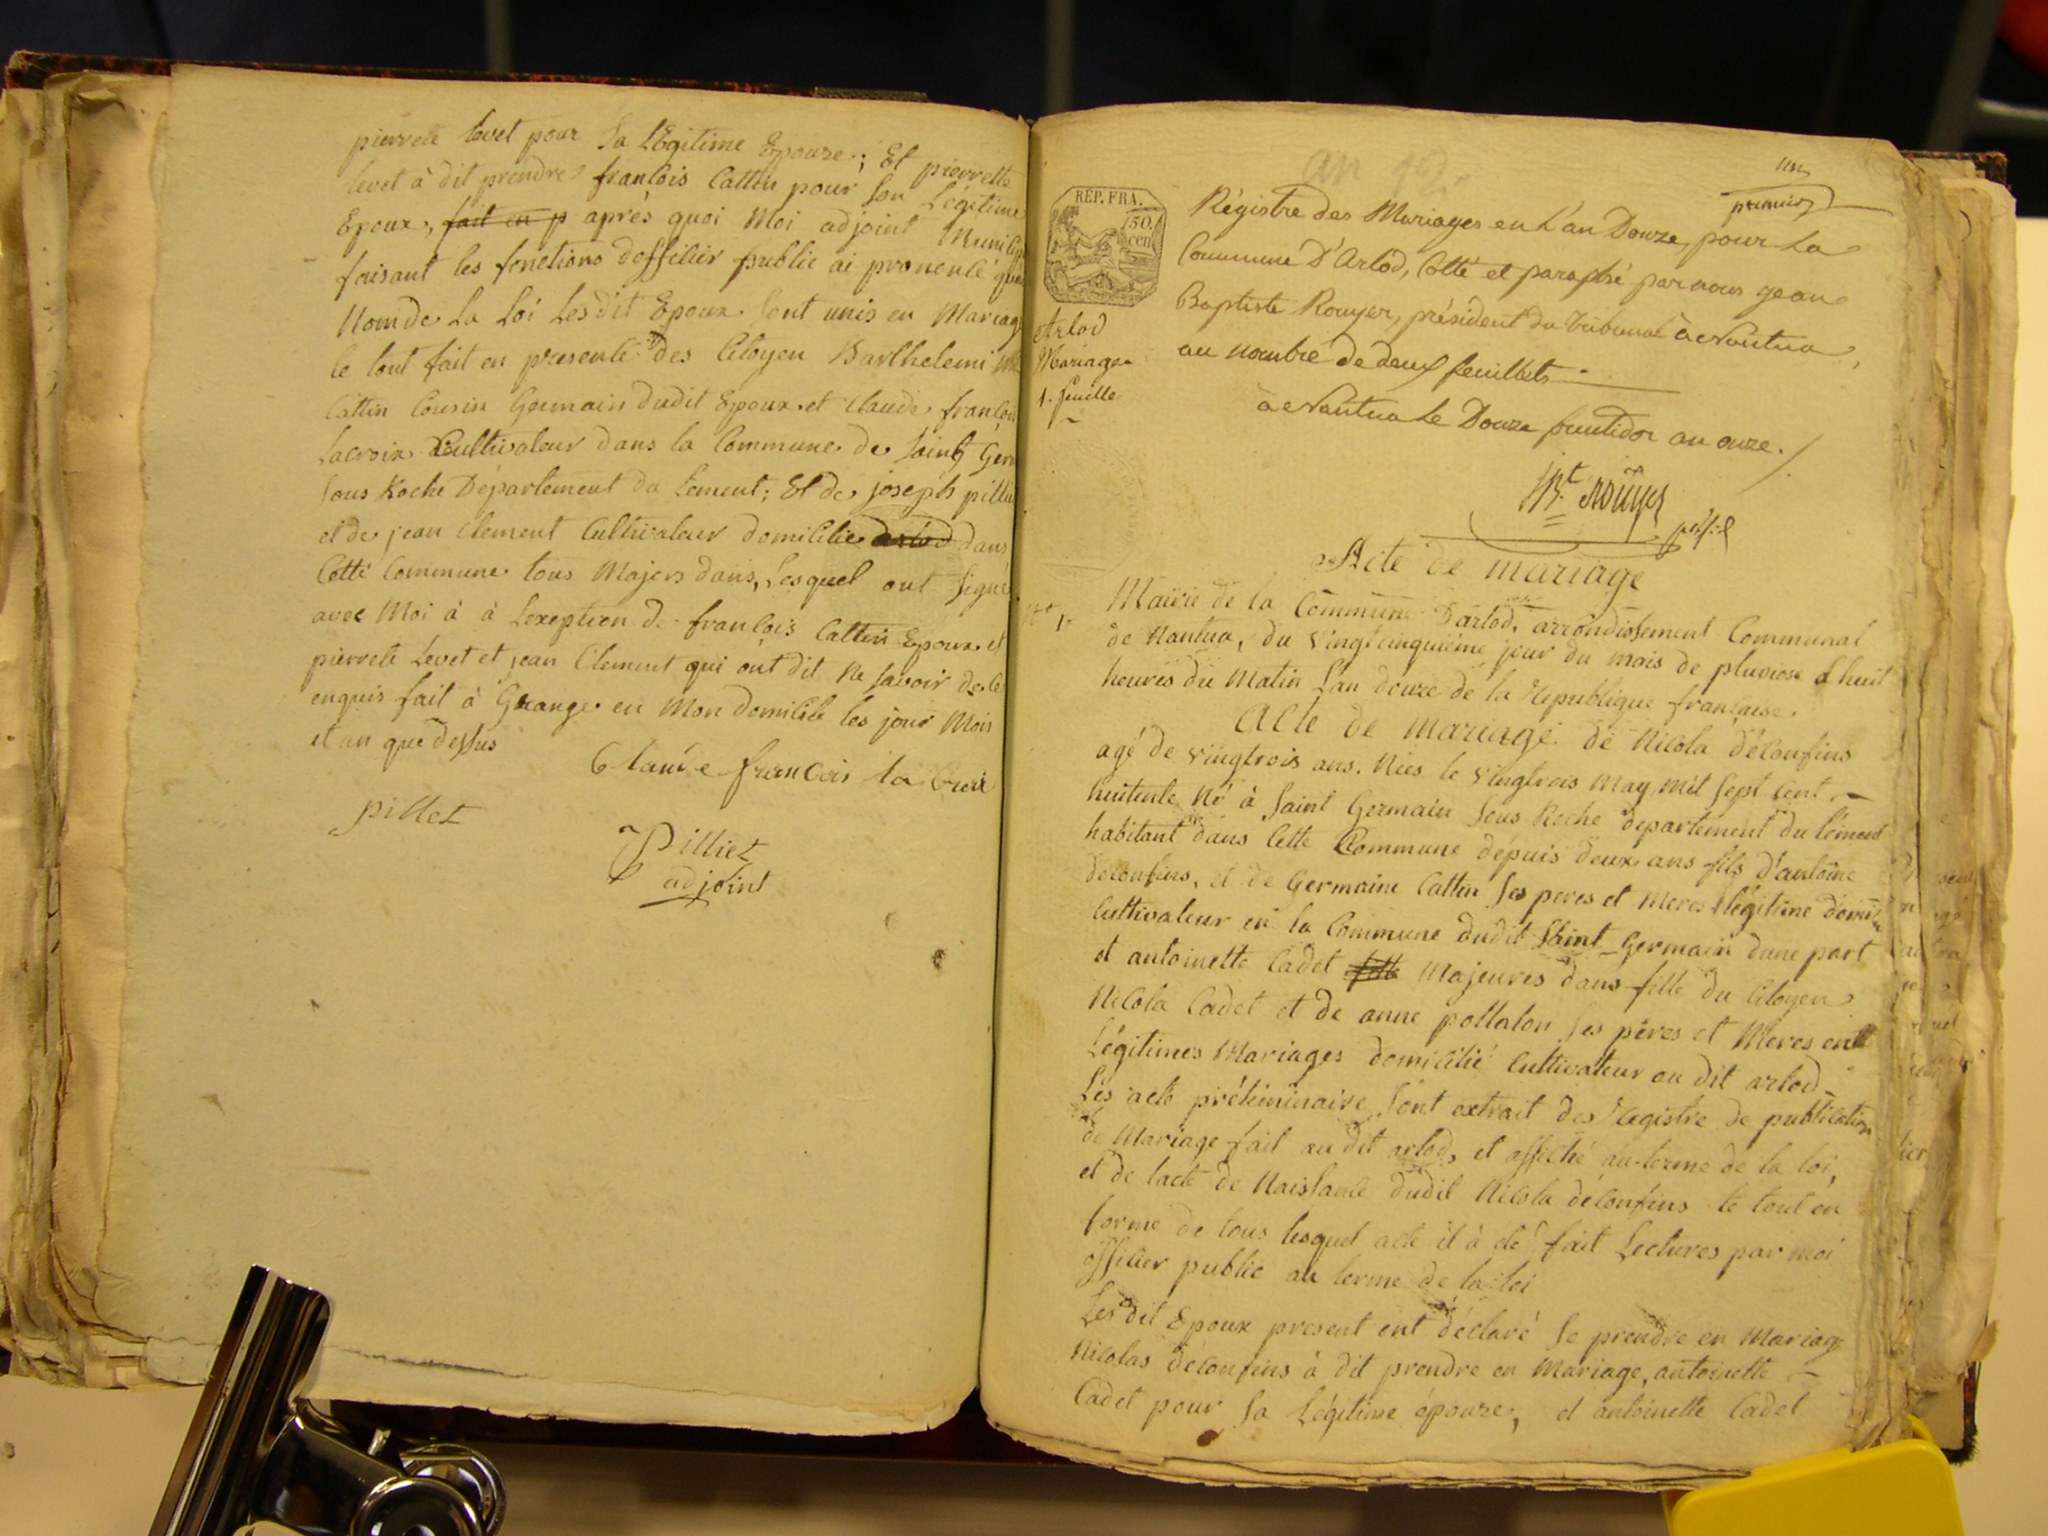 pierrete levet pour sa légitime Epouze; Et pierrette
levet à dit prendre françois Cattin pour son Légitime
Epoux, fait en p après quoi Moi adjoint
faisant les fonctions dofficier public ai prononcé
Nom de La Loi Lesdit Epoux sont unis en Mariage
le tout fait en presente des Citoyen Barthelemi
Cattin Cousin Germain dudit Epoux et Claude françois
Lacroix Cultivateur dans la Commune de Saint
sous Roche Département du Lement; Et de joseph
et de jean Clement Cultivateur domicilie arlod dans
Cette Commune tous Majers dans, Lesquel ont signé
avec Moi à à Lexeption de françois Cattin Epoux et
pierrete Levet et jean Clement qui ont dit Ne savoir de ce
enquis fait à Grange en Mon domicile les jour Mois
et an que dessus
Claude francois la Croix
pillet
Pilliet
adjoint
an 12.
un
premier
REP. FRA.
50.
cen
Régistre des Mariages en L'an Douze, pour La
Commune D'Arlod, Cotté et paraphé par nous jean
Baptiste Rouyer, président du Tribunal à Nantua,
au nombre de deux feuillets.
à Nantua Le Douze fructidor an onze.
JBt Rouyer
Arlod
Mariage
1. feuille
Acte de mariage
No 1
Mairie de la Commune Darlod, arrondissement Communal
de Nantua, du vingtcinquième jour du mois de pluviose à huit
heures du Matin L'an douze de la Republique française
Acte de mariage de Nicola déconfins
agé de vingtrois ans. Nées le vingtrois May mil sept Cent
huitente Né à Saint Germain sous Roche departement du lément
habitant dans Cette Commune depuis deux ans fils d'antoine
déconfins, et de Germaine Cattin ses peres et Meres légitime
Cultivateur en la Commune dudit Saint Germain dune part
et antoinette Cadet fille Majeures dans fille du Citoyen
Nicola Cadet et de anne pollaton ses pères et Meres en
Légitimes Mariages domicilié Cultivateur au dit arlod
Les acte préliminaire sont extrait des Registre de publication
de Mariage fait au dit arlod, et affiché au terme de la loi,
et de lacte de Naissance dudit Nicola déconfins le tout en
forme de tous lesquel acte il à eté fait Lectures par moi
officier public au terme de la loi
Lesdit Epoux present ont déclaré se prendre en Mariage
Nicolas déconfins à dit prendre en Mariage, antoinette
Cadet pour sa Légitime épouze, et antoinette Cadet